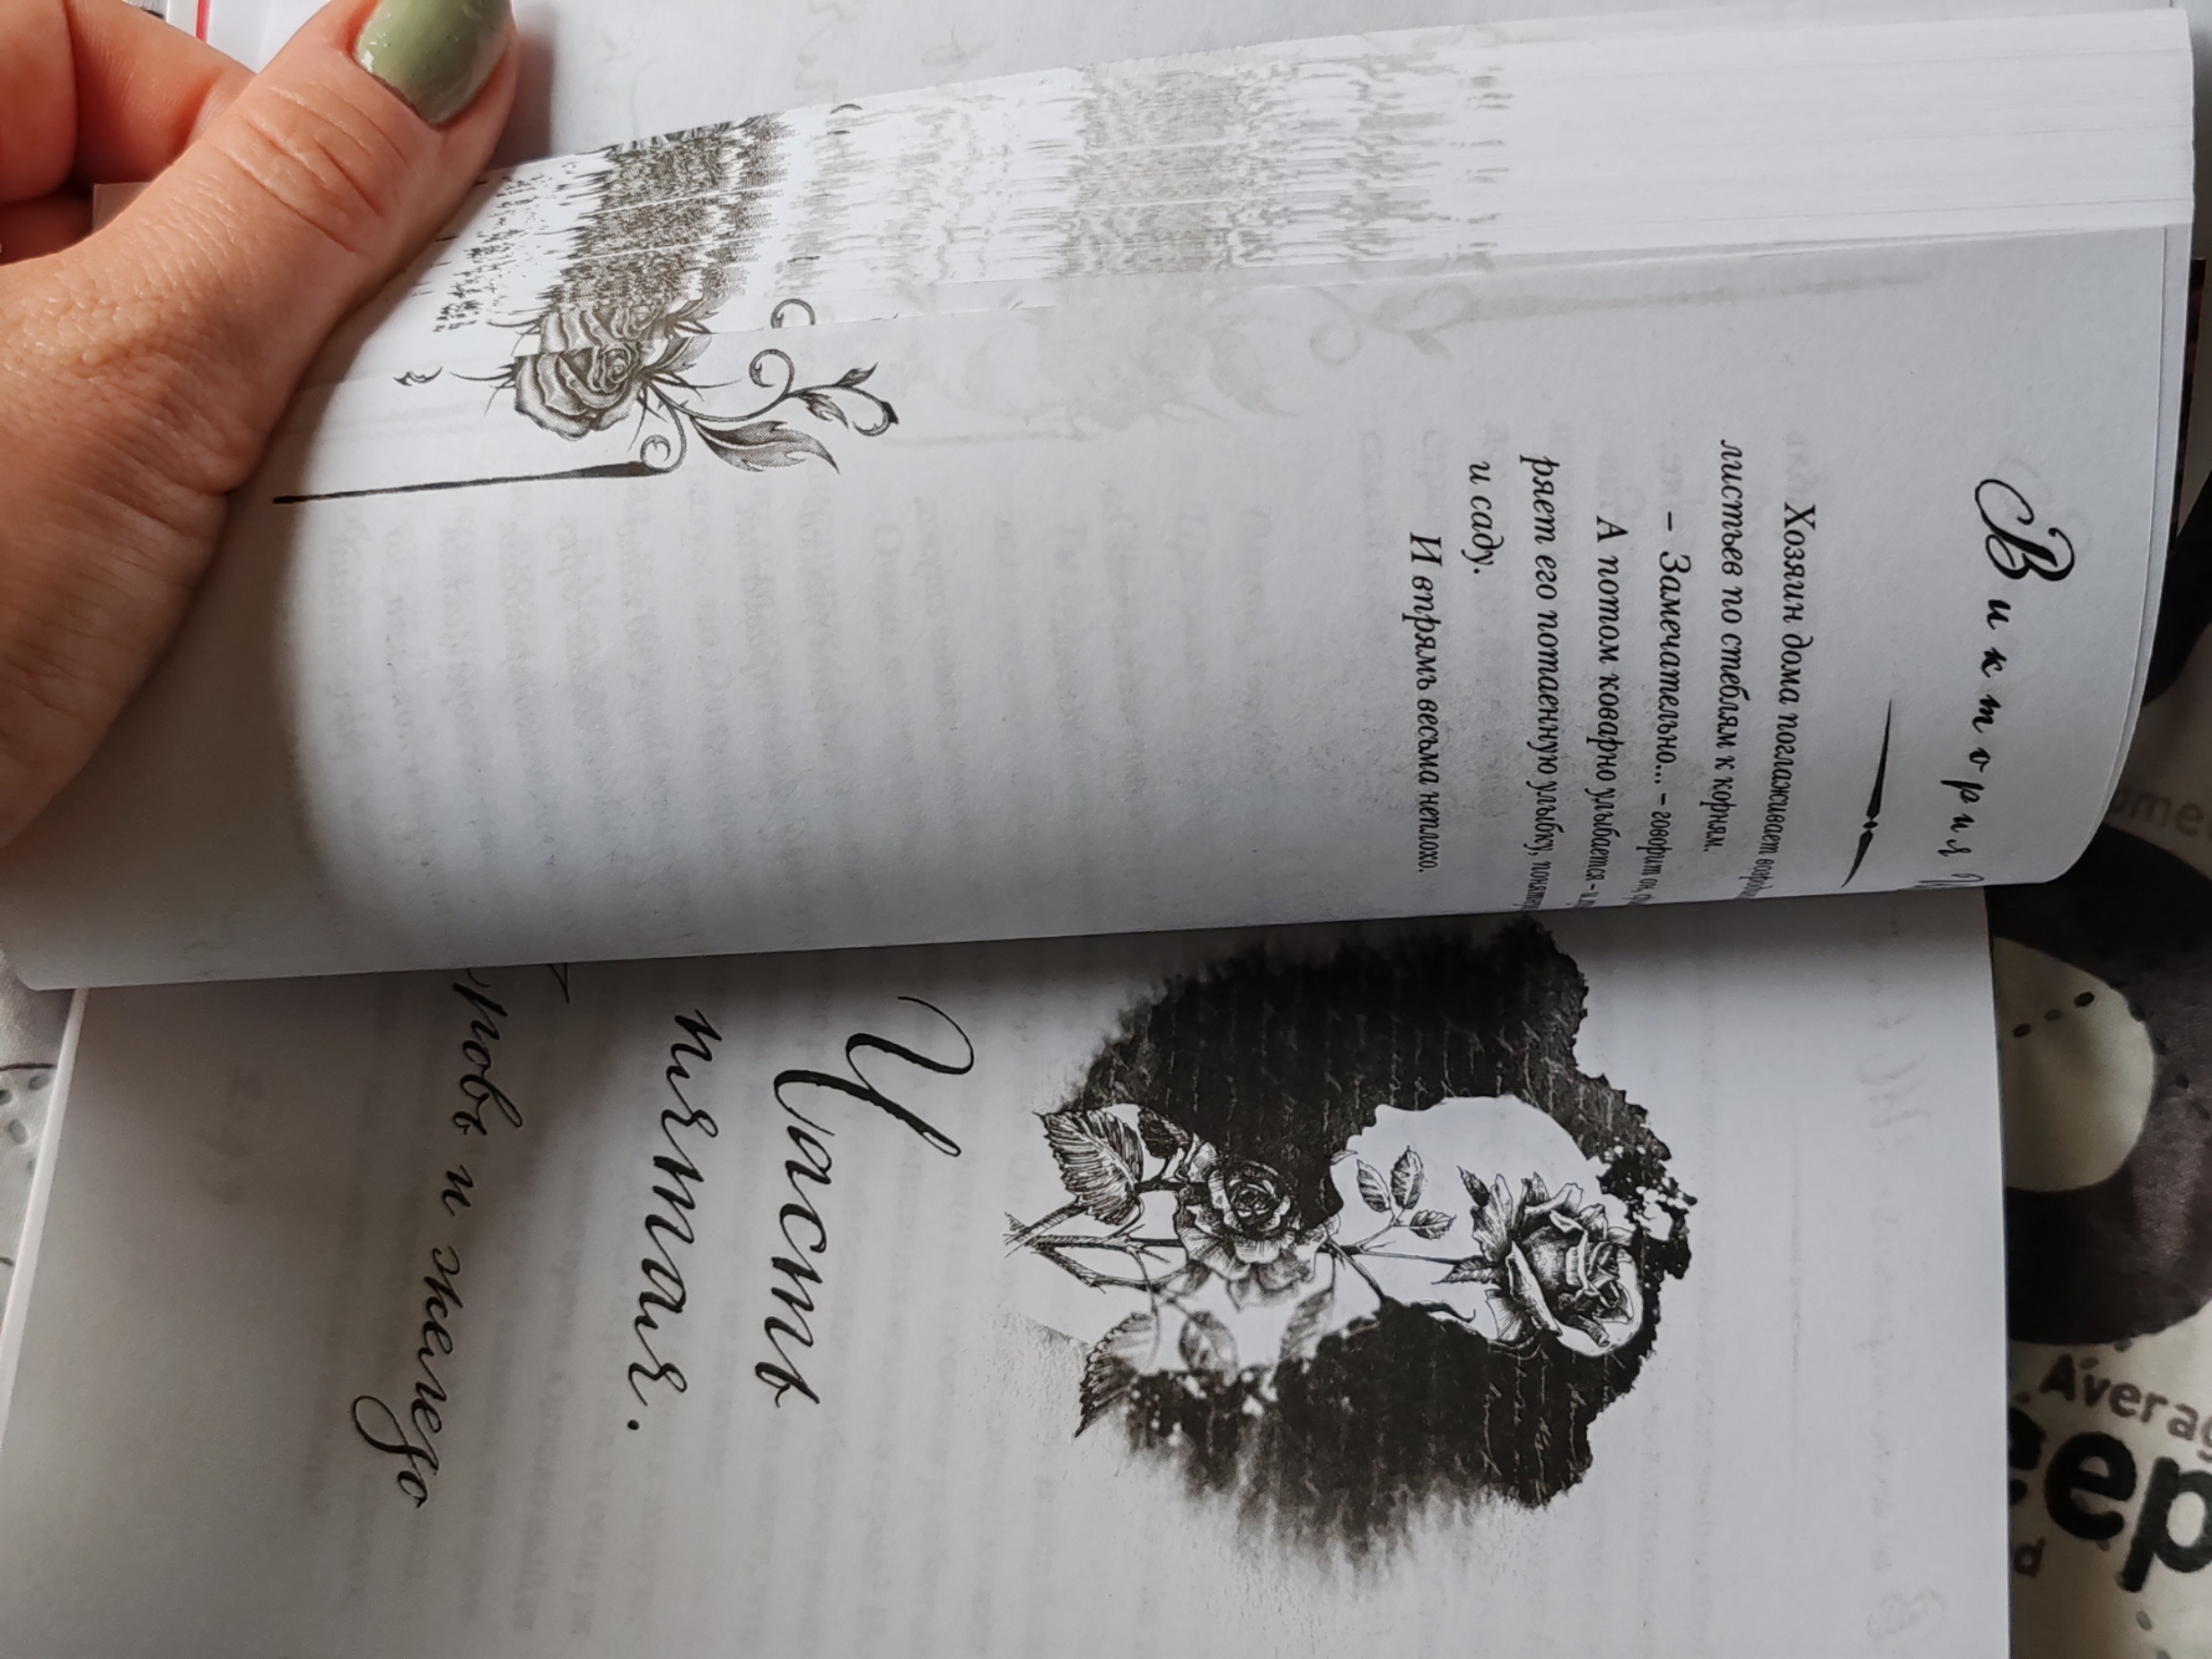 Виктория
Хозяин дома поглаживает
листьев по стеблям к корням.
– Замечательно... – говорит он,
А потом коварно улыбается – и
ряет его потаенную улыбку,
и саду.
И впрямь весьма неплохо.
Часть
пятая.
и железо
Averag
eep
d
ome